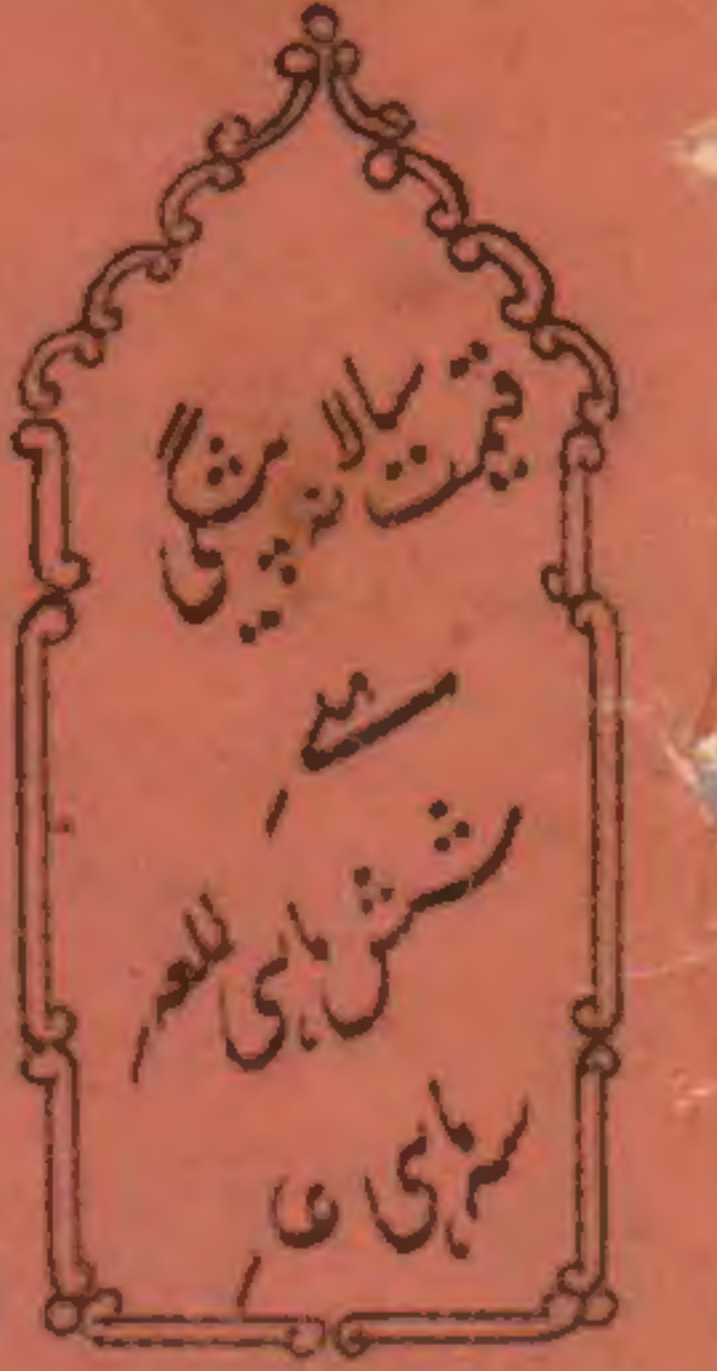 قیمت سالانہ پیشگی
ششماہی للعہ
سہ ماہی